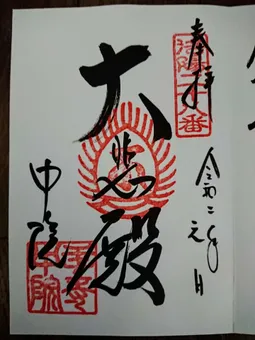 奉拝
大悲殿
令和二年
元日
中院